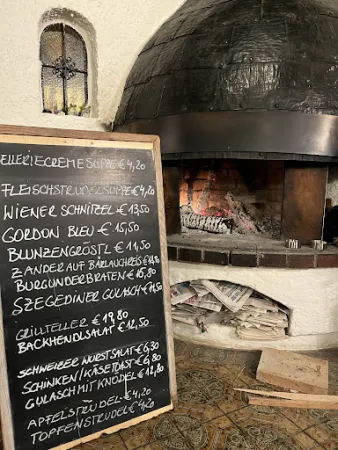 ELLERIECREMESUPPE €4,20
FLEISCHSTRUDELSUPPE €4,20
WIENER SCHNITZEL €13,50
GORDON BLEU €15,50
BLUNZENGRÖSTL €11,50
ZANDER AUF BÄRLAUCHREIS
BURGUNDERBRATEN €15,80
SZEGEDINER GULASCH
GRILLTELLER €19,80
BACKHENDLSALAT €12,50
SCHWEIZER WURSTSALAT €6,30
SCHINKEN/KÄSETOAST €6,80
GULASCH MIT KNÖDEL €12,80
APFELSTRUDEL €4,20
TOPFENSTRUDEL €4,20